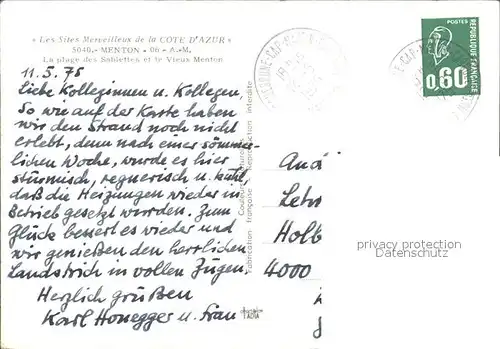 « Les Sites Merveilleux de la COTE D'AZUR »
5040.- MENTON - 06 - A.-M.
La plage des Sablettes et le Vieux Menton
11.5.75
Liebe Kolleginnen u. Kollegen,
So wie auf der Karte haben
wir den Strand noch nicht
erlebt, denn nach einer sömmer-
lichen Woche, wurde es hier
stürmisch, regnerisch u. kühl,
daß die Heizungen wieder in
Betrieb gesetzt wurden. Zum
Glück bessert es wieder und
wir genießen den herrlichen
Landstrich in vollen Zügen.
Herzlich grüßen
Karl Honegger u. Frau
Fabrication française - Reproduction interdite
POSTES
REPUBLIQUE FRANÇAISE
0,60
Holb
4000
privacy protection
Datenschutz